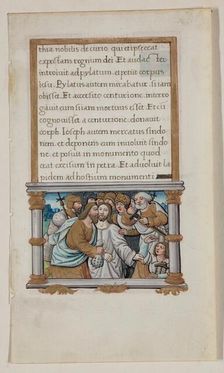 thia nobilis decurio, qui et ipse erat
expectans regnum dei. Et audacter
introiuit ad pylatum, et petiit corpus
iesu. Pylatus autem mirabatur si iam
obiisset. Et accersito centurione, interro
gauit eum si iam mortuus esset. Et cū
cognouisset a centurione, donauit
corpus Ioseph. Ioseph autem mercatus sindo
nem, et deponens eum inuoluit sindo
ne, et posuit in monumento quod
erat excisum in petra. Et aduoluit la
pidem ad hostium monumenti